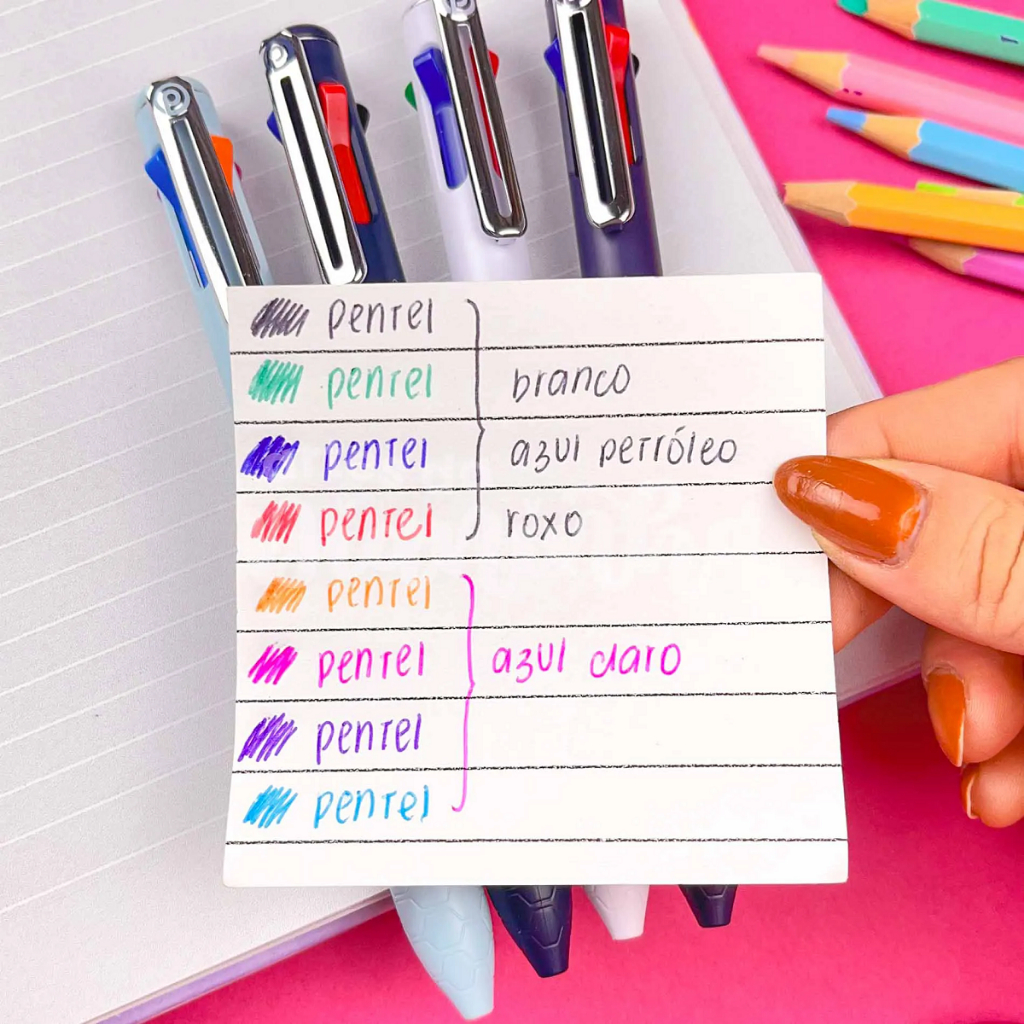 pentel
pentel branco
pentel azul petróleo
pentel roxo
pentel
pentel azul claro
pentel
pentel